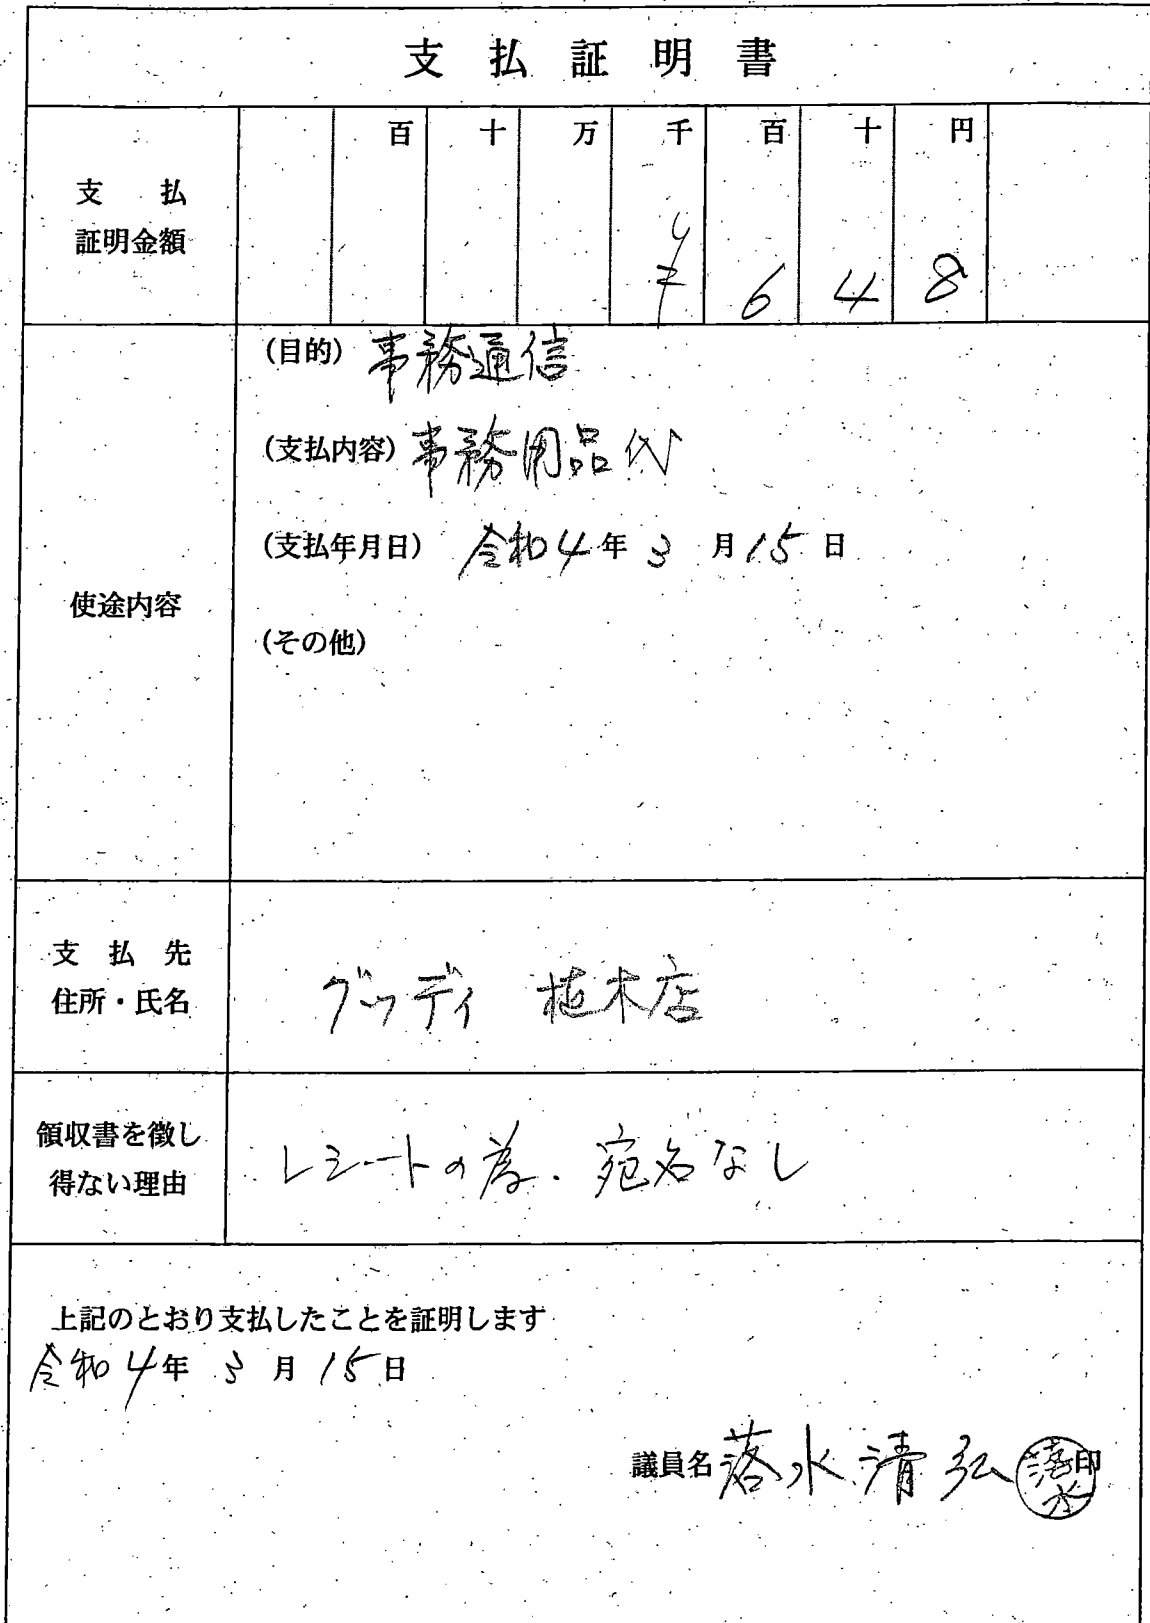 支払証明書
百 十 万 千 百 十 円
支払
証明金額
¥ 6 4 8
(目的) 事務通信
(支払内容) 事務用品代
(支払年月日) 令和4年3月15日
使途内容
(その他)
支払先
住所・氏名
グッディ 植木店
領収書を徴し
得ない理由
レシートの為、宛名なし
上記のとおり支払したことを証明します
令和4年3月15日
議員名 落水清弘 印
落水